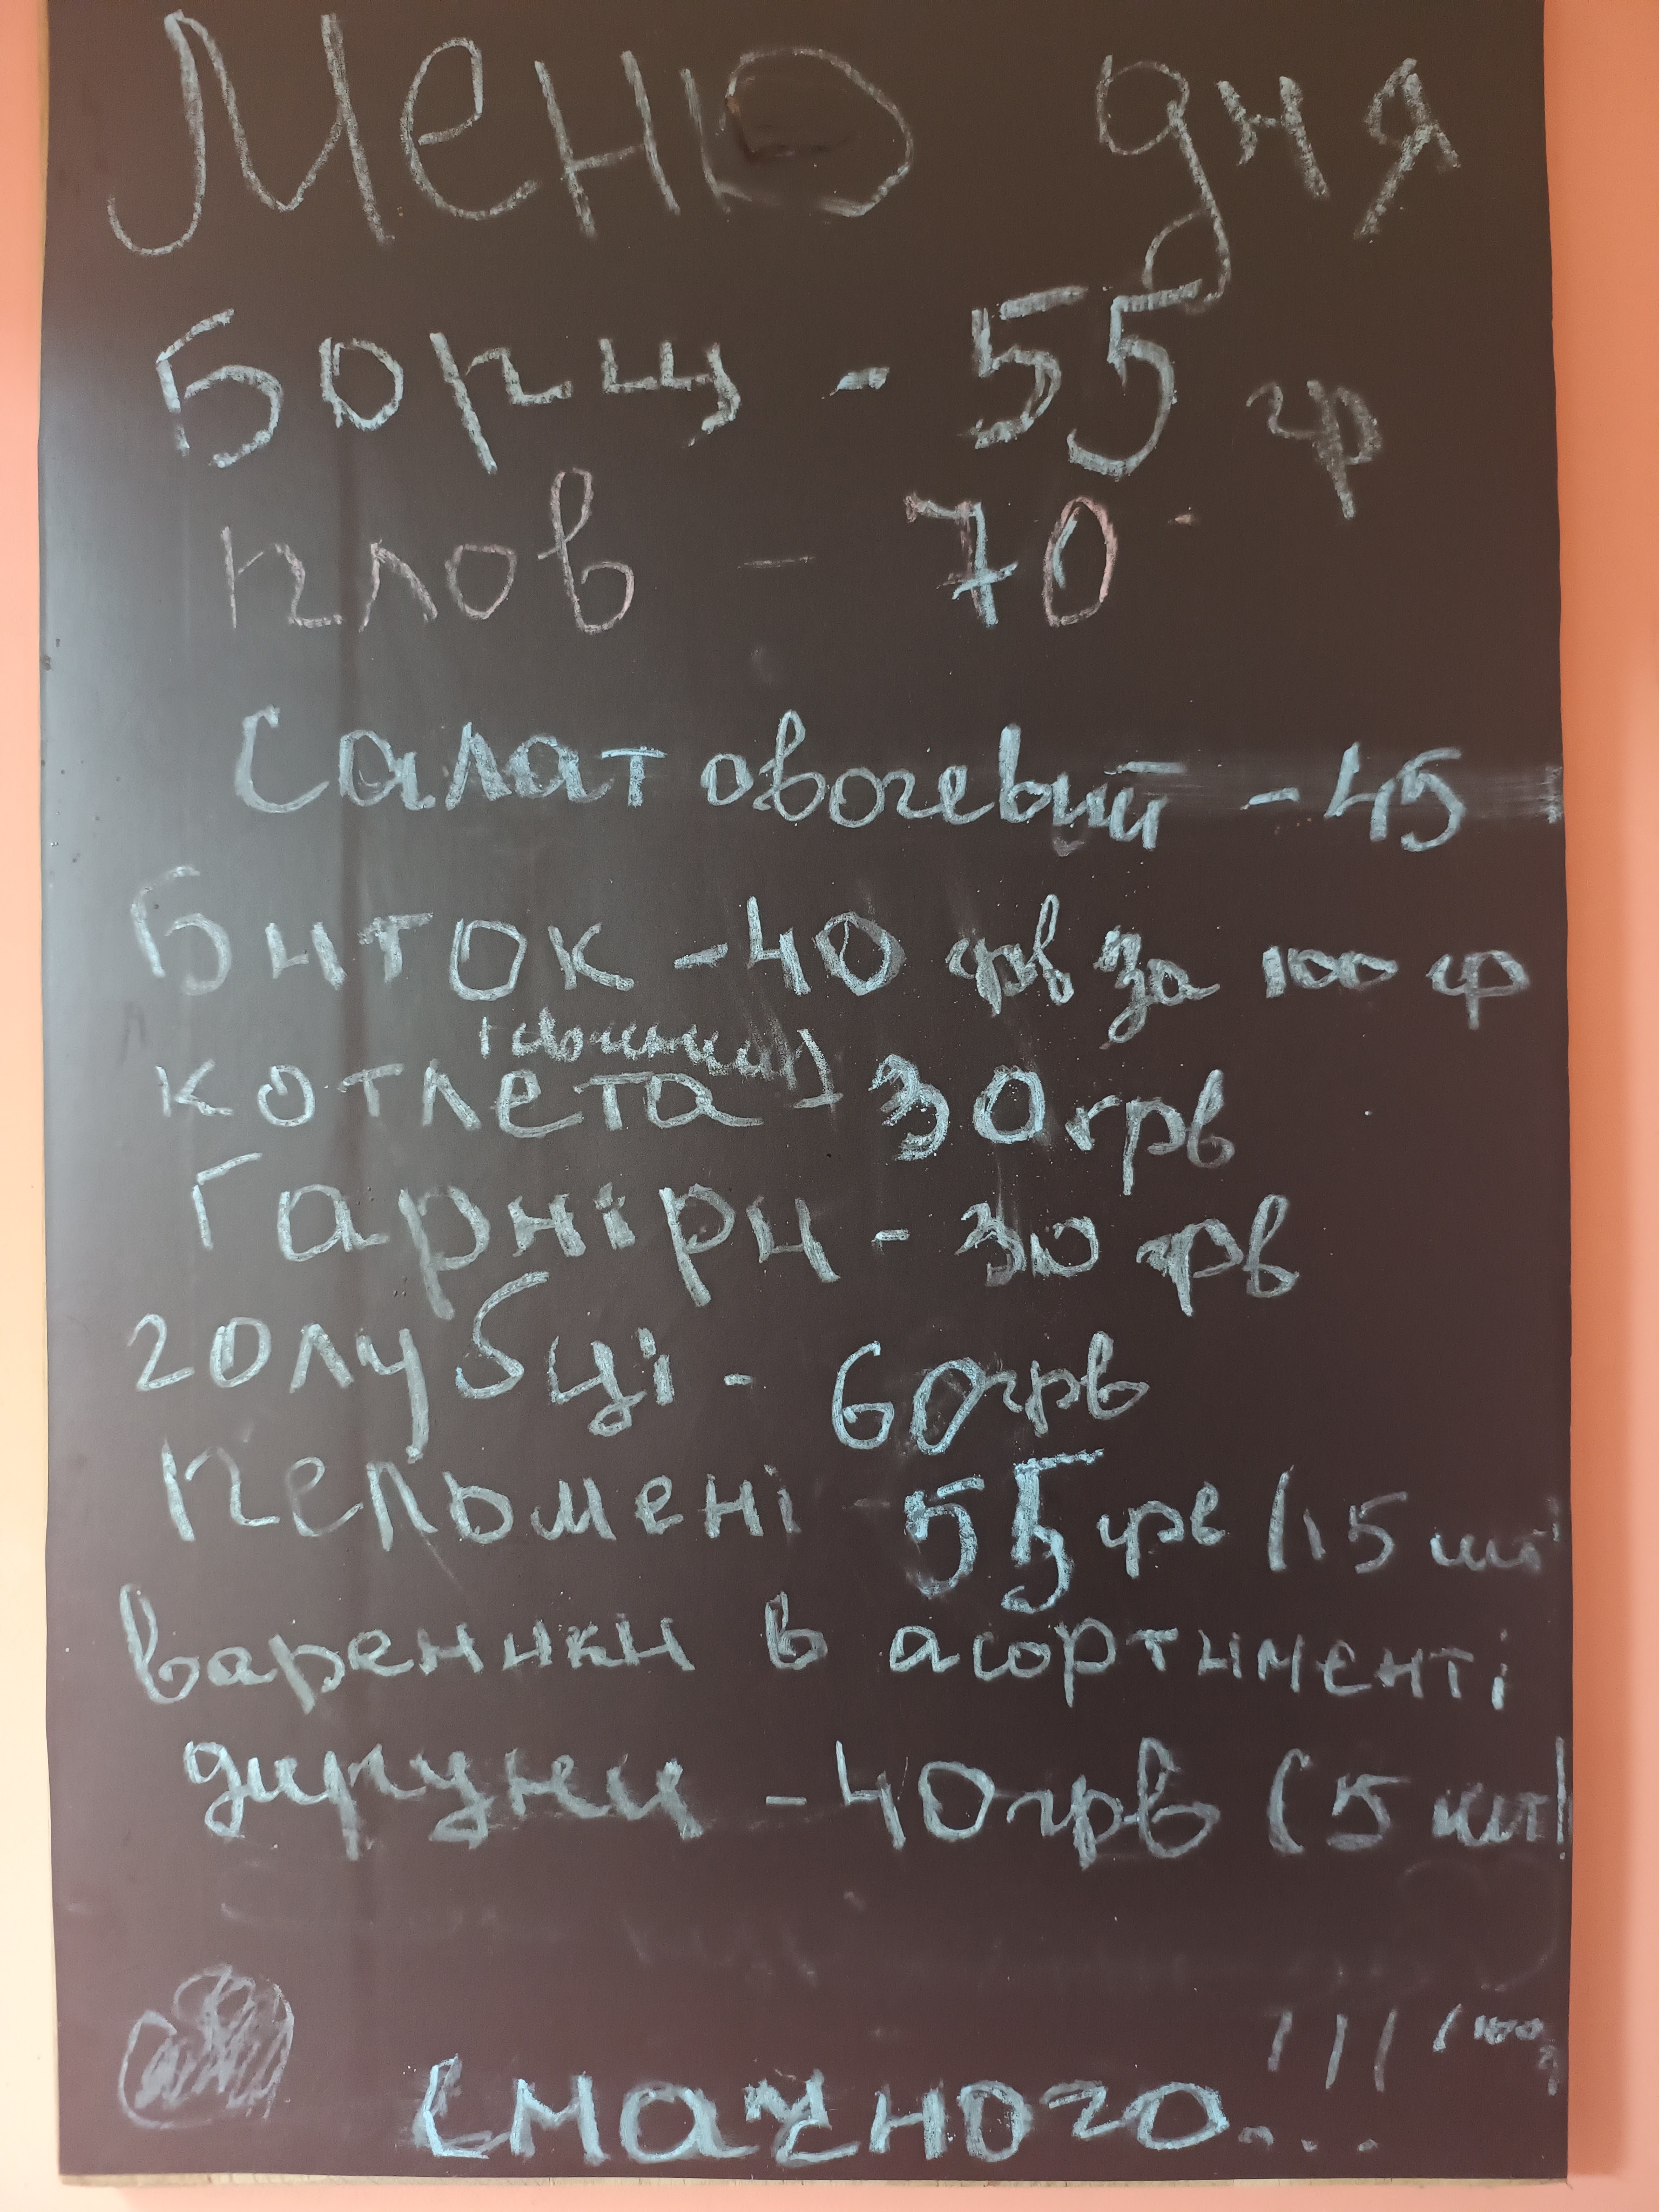 Меню дня
Борщ - 55 гр
плов - 70
Салат овочевий - 45
Биток - 40 грв за 100 гр
котлета - 30 грв
Гарніри - 30 грв
голубці - 60 грв
Пельмені 55 грв (15 шт
вареники в асортименті
дируни - 40 грв (5 шт)
Смачного...!!!